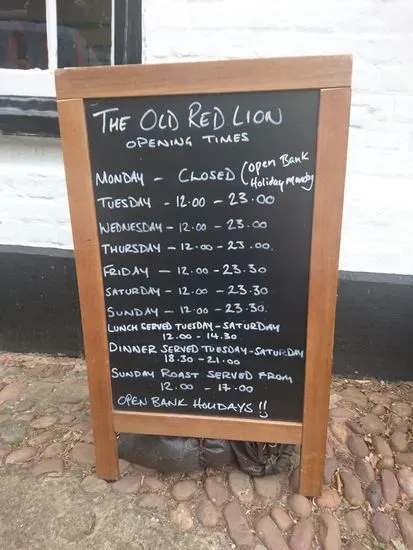 THE OLD RED LION
OPENING TIMES
MONDAY - CLOSED (open Bank
Holiday Monday
TUESDAY - 12.00 - 23.00
WEDNESDAY - 12.00 - 23.00
THURSDAY - 12.00 - 23.00.
FRIDAY - 12.00 - 23.30
SATURDAY - 12.00 - 23.30
SUNDAY - 12.00 - 23.30.
LUNCH SERVED TUESDAY - SATURDAY
12.00 - 14.30
DINNER SERVED TUESDAY - SATURDAY
18.30 - 21.00
SUNDAY ROAST SERVED FROM
12.00 - 17.00
OPEN BANK HOLIDAYS !!